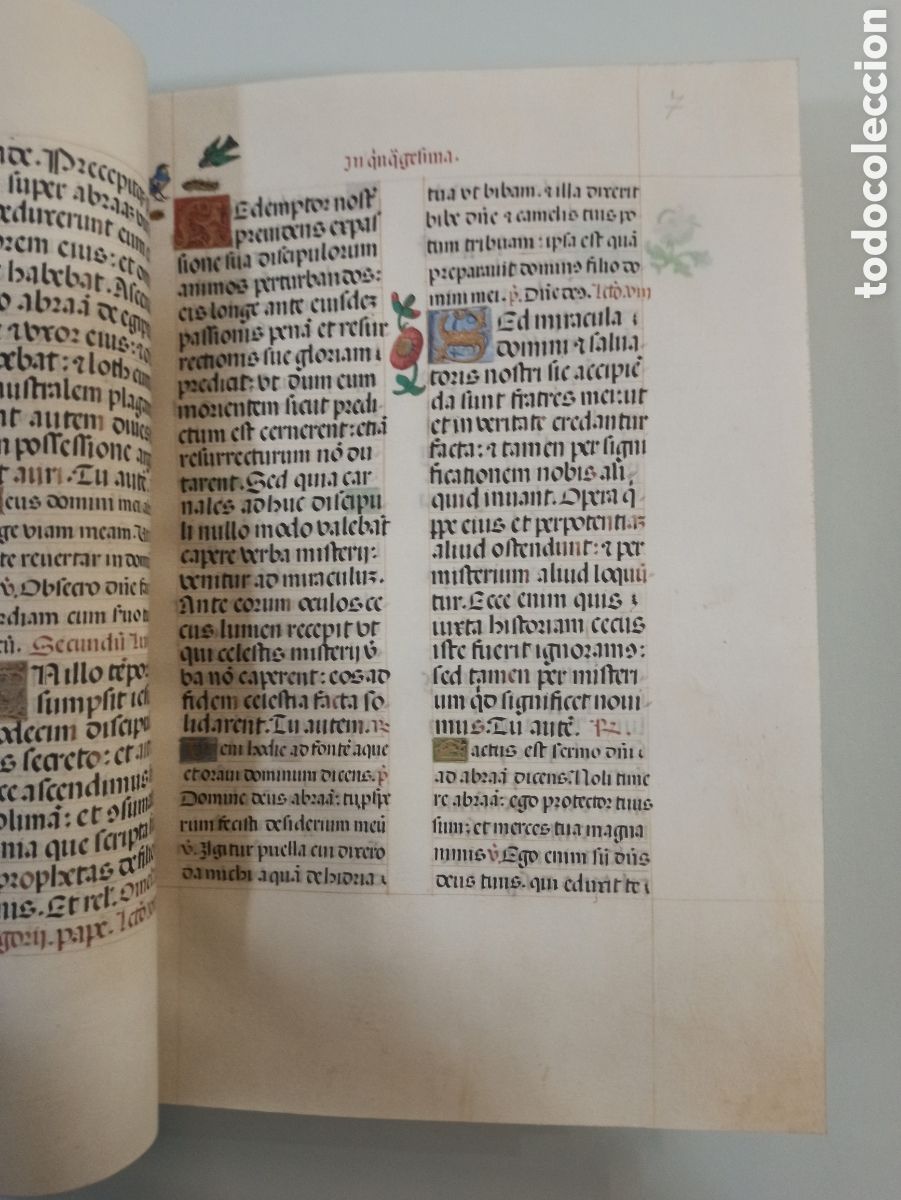 nde. Precepitq
super abraa
eduxerunt eum
orem eius: et o
t habebat. Ascē
o abraā de egip
et uxor eius: et o
ebat: et loth cum
australem plagā
nt autem diues
n possessione
t auri. Tu autē.
eus domini mei
ge viam meam.
te reuertar in dom
v̄. Obsecro dn̄e fa
rdiam cum suo
Secundū
N illo tēpo
sumpsit
odecim discipu
s secreto: et
ce ascendimus
olimā: et ꝯsum
nia que scripta
prophetas de filio
nis. Et rel. Ome
gorij. pape.
7
In q̄nq̄gesima.
Redemptor nostē
preuidens ex pas
sione sua discipulorum
animos perturbandos:
eis longe ante eiusdeꝫ
passionis penā et resur
rectionis sue gloriam
predicat: vt dum eum
morientem sicut predi
ctum est cernerent: etiā
resurrecturum nō du
tarent. Sed quia car
nales adhuc discipu
li nullo modo valebāt
capere verba misterij:
venitur ad miraculuꝫ.
Ante eorum oculos ce
cus lumen recepit vt
qui celestis misterij v̄
ba nō caperent: eos ad
fidem celestia facta so
lidarent. Tu autem. R̄
Veni hodie ad fontē aque
et oraui dominum dicens. p̄
Domine deus abraā: tu ꝓsp̄e
rum fecisti desiderium meū
v̄. Igitur puella cui dixero
da michi aquā de hidria
tua vt bibam. et illa dixerit
bibe dn̄e et camelis tuis po
tum tribuam: ipsa est quā
preparauit dominus filio do
mini mei. p̄. Dn̄e de9. lctō. viii
Sed miracula
domini et salua
toris nostri sic accipiē
da sunt fratres mei: ut
et in veritate credantur
facta: et tamen per signi
ficationem nobis ali
quid inuant. Opera q̄
ppe eius et per potentiaꝫ
aliud ostendunt: et per
misterium aliud loquū
tur. Ecce enim quis
iuxta historiam cecus
iste fuerit ignoramꝰ:
sed tamen per misteri
um qd̄ significet noui
mus. Tu autē. R̄.
Factus est sermo dn̄i
ad abraā dicens. Noli time
re abraā: ego protector tuus
sum: et merces tua magna
nimis v̄. Ego enim sū dn̄s
deus tuus. qui eduxit te
todocoleccion